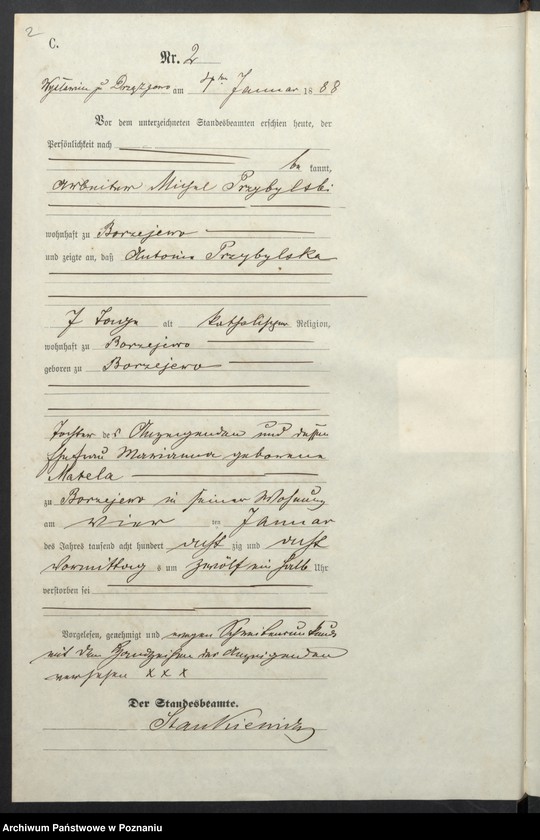 2
C.
Nr. 2
zu am 4ten Januar 1888
Vor dem unterzeichneten Standesbeamten erschien heute, der
Persönlichkeit nach
be kannt,
Arbeiter Michel Przybylski
wohnhaft zu Borzejewo
und zeigte an, daß Antonie Przybylska
7 Tage alt katholischer Religion,
wohnhaft zu Borzejewo
geboren zu Borzejewo
Tochter des Anzeigenden und dessen
Ehefrau Marianna geborene
Matela
zu Borzejewo in seiner Wohnung
am vier ten Januar
des Jahres tausend acht hundert acht zig und acht
Vormittag s um zwölf ein halb Uhr
verstorben sei
Vorgelesen, genehmigt und wegen Schreibensunkunde
mit dem Handzeichen des Anzeigenden
versehen x x x
Der Standesbeamte.
Stankiewicz
Archiwum Państwowe w Poznaniu